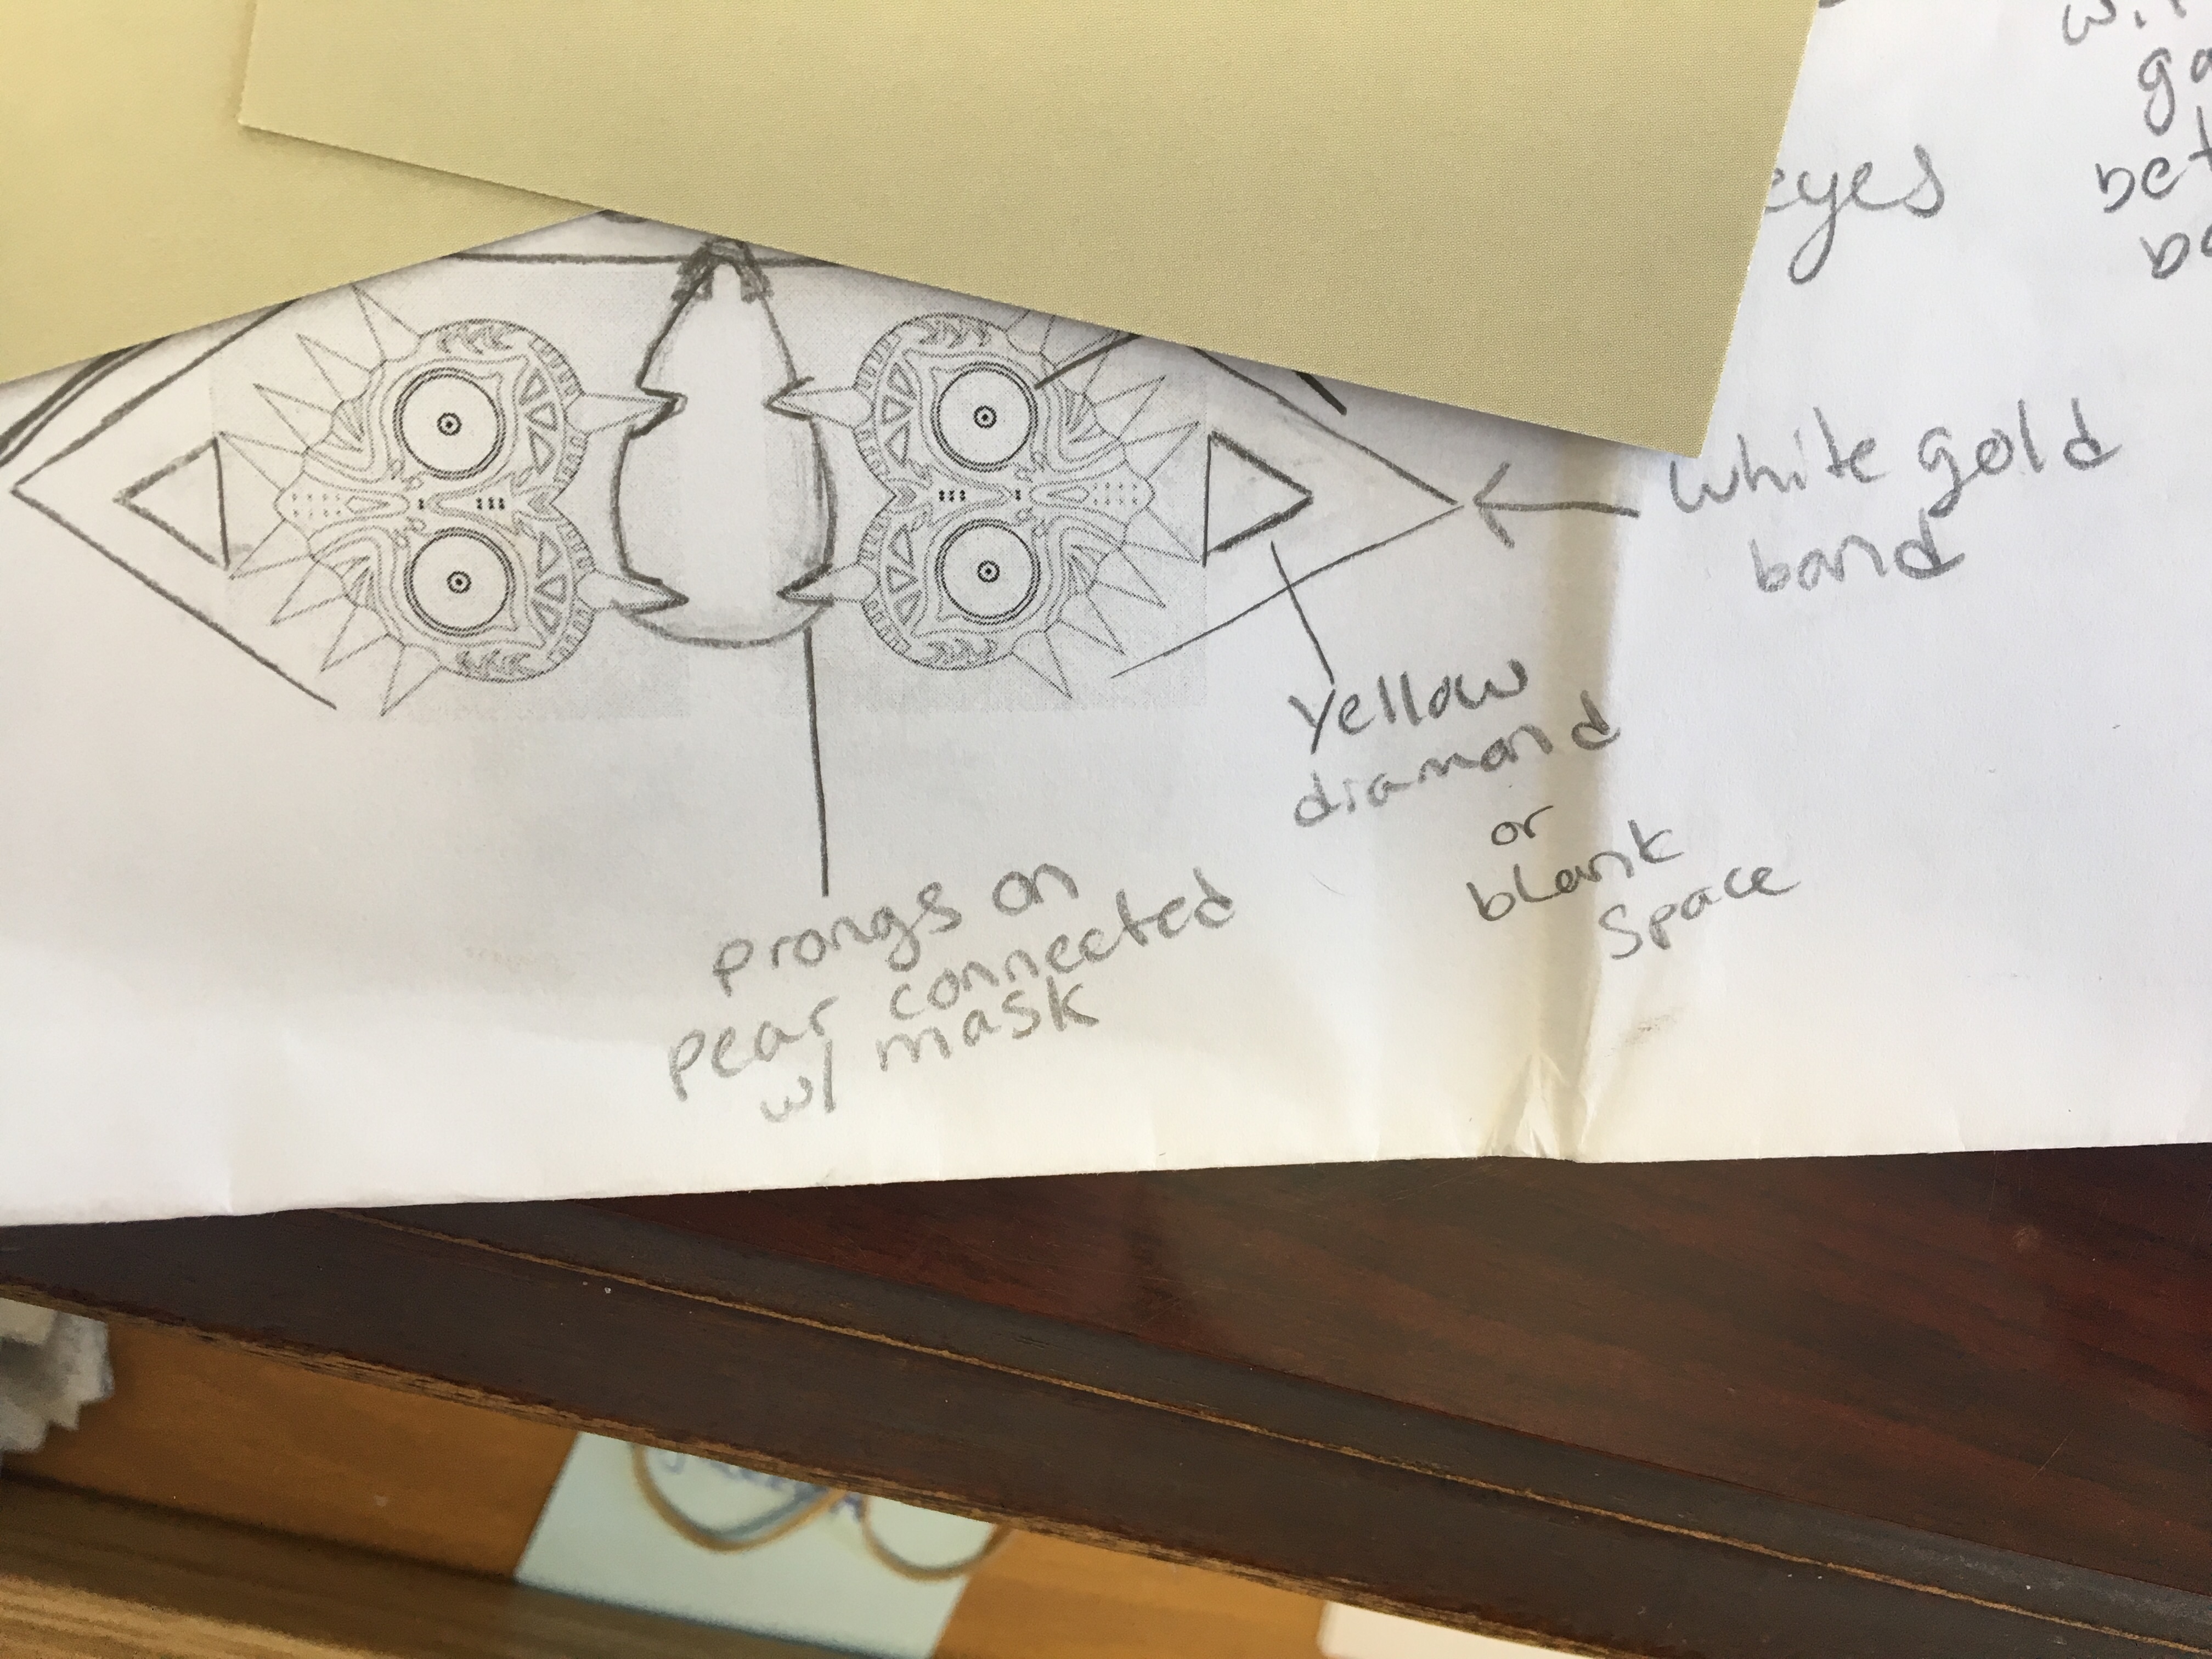 eyes
White gold
band
Yellow
diamond
or
blank
Space
prongs on
pear connected
w/ mask